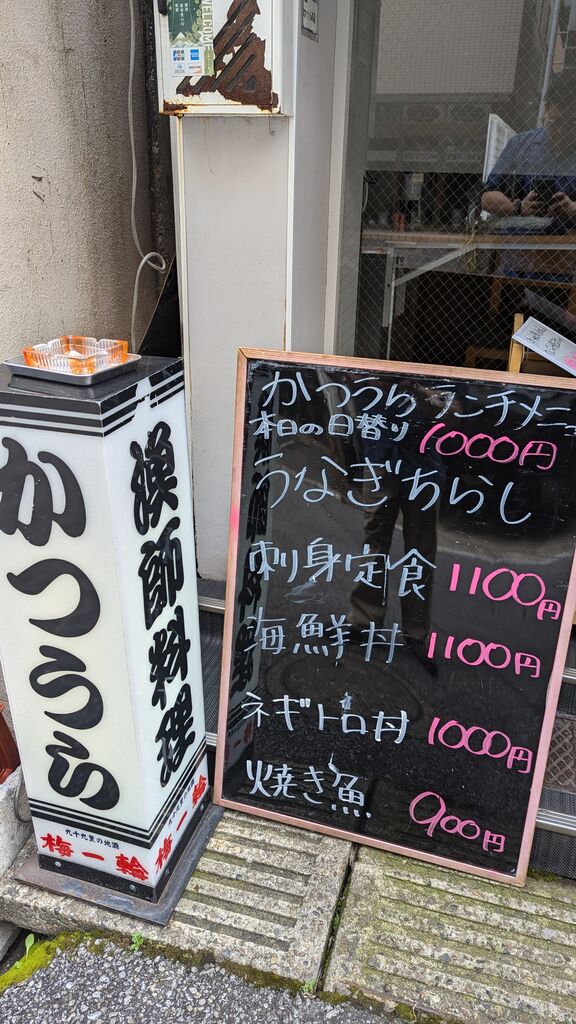 WELCOME
かつうら
漁師料理
九十九里の地酒
梅一輪
九十九里の地酒
梅一輪
かつうらランチメニュ
本日の日替り 1000円
うなぎちらし
刺身定食 1100円
海鮮丼 1100円
ネギトロ丼 1000円
焼き魚 900円